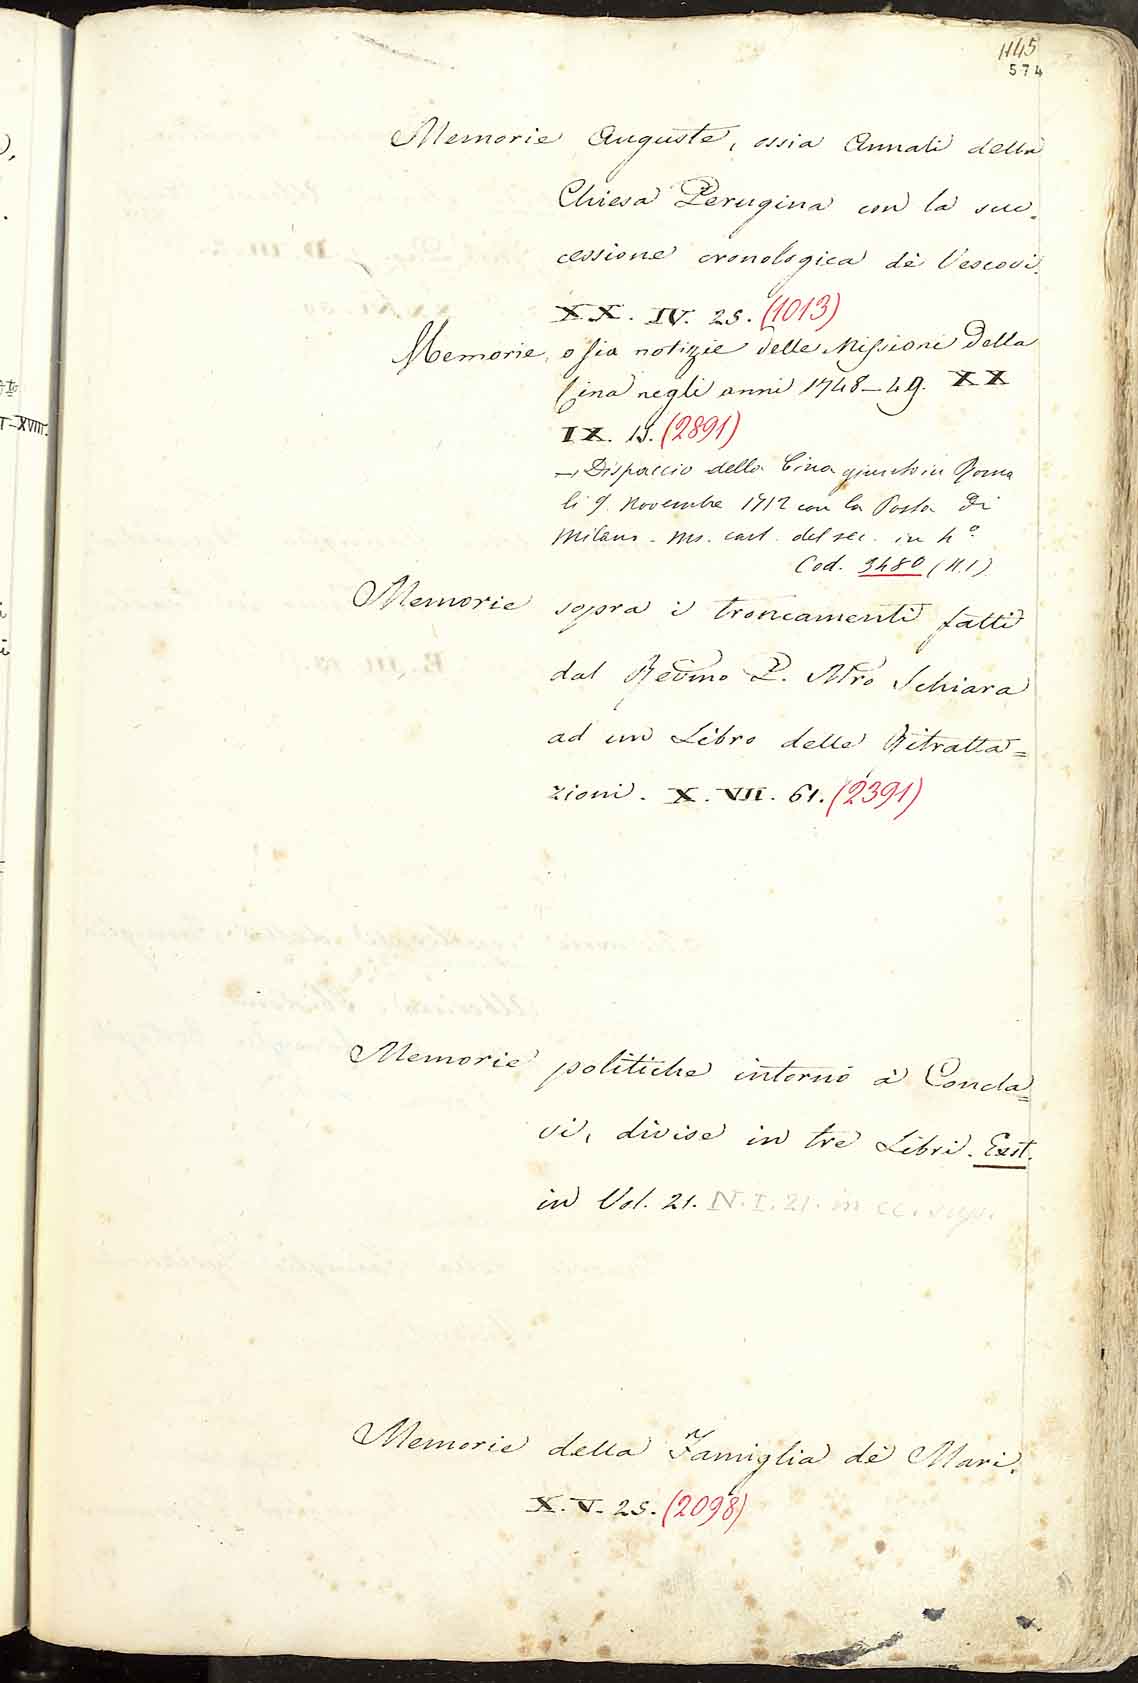 1145
574
Memorie Auguste, ossia Annali della
Chiesa Perugina con la suc-
cessione cronologica dè Vescovi.
XX. IV. 25. (1013)
Memorie, o sia notizie delle Missioni della
Cina negli anni 1748-49. XX
IX. 15. (2891)
— Dispaccio della Cina giunto in Roma
li 9. Novembre 1712 con la Posta di
Milano. Ms. cart. del sec. in 4°.
Cod. 3480 (N.1)
Memorie sopra i troncamenti fatti
dal Revmo P. Mro Schiara
ad un Libro delle Ritratta=
zioni. X. VII. 61. (2391)
Memorie politiche intorno à Concla=
vi, divise in tre Libri. Exst.
in Vol. 21. N. I. 21. in cc.
Memorie della Famiglia dè Mari.
X. V. 25. (2098)
T-XVIII.